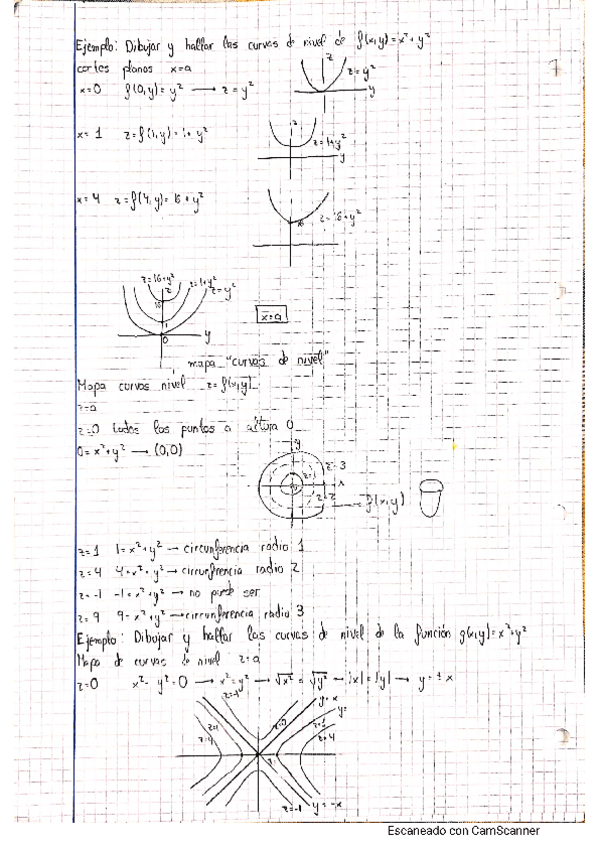 Ejemplo: Dibujar y hallar las curvas de nivel de f(x,y) = x²+y²
cortes planos x=a
x=0 f(0,y)=y² → z=y²
z
z=y²
y
x=1 z=f(1,y)=1+y²
z
z=1+y²
y
x=4 z=f(4,y)=16+y²
16
z=16+y²
z=16+y²
z
z=1+y²
z=y²
16
1
0
y
x=a
mapa "curvas de nivel"
Mapa curvas nivel z=f(x,y)
z=a
z=0 todos los puntos a altura 0
0=x²+y² → (0,0)
y
z=3
x
z=1
z=2
f(x,y)
z=1 1=x²+y² → circunferencia radio 1
z=4 4=x²+y² → circunferencia radio 2
z=-1 -1=x²+y² → no puede ser
z=9 9=x²+y² → circunferencia radio 3
Ejemplo: Dibujar y hallar las curvas de nivel de la función g(x,y)=x²+y²
Mapa de curvas de nivel z=a
z=0 x²-y²=0 → x²=y² → √x² = √y² → |x|=|y| → y=±x
z=-1
y=x
y=
z=0
z=1
z=4
z=1
z=4
z=-1
y=-x
Escaneado con CamScanner